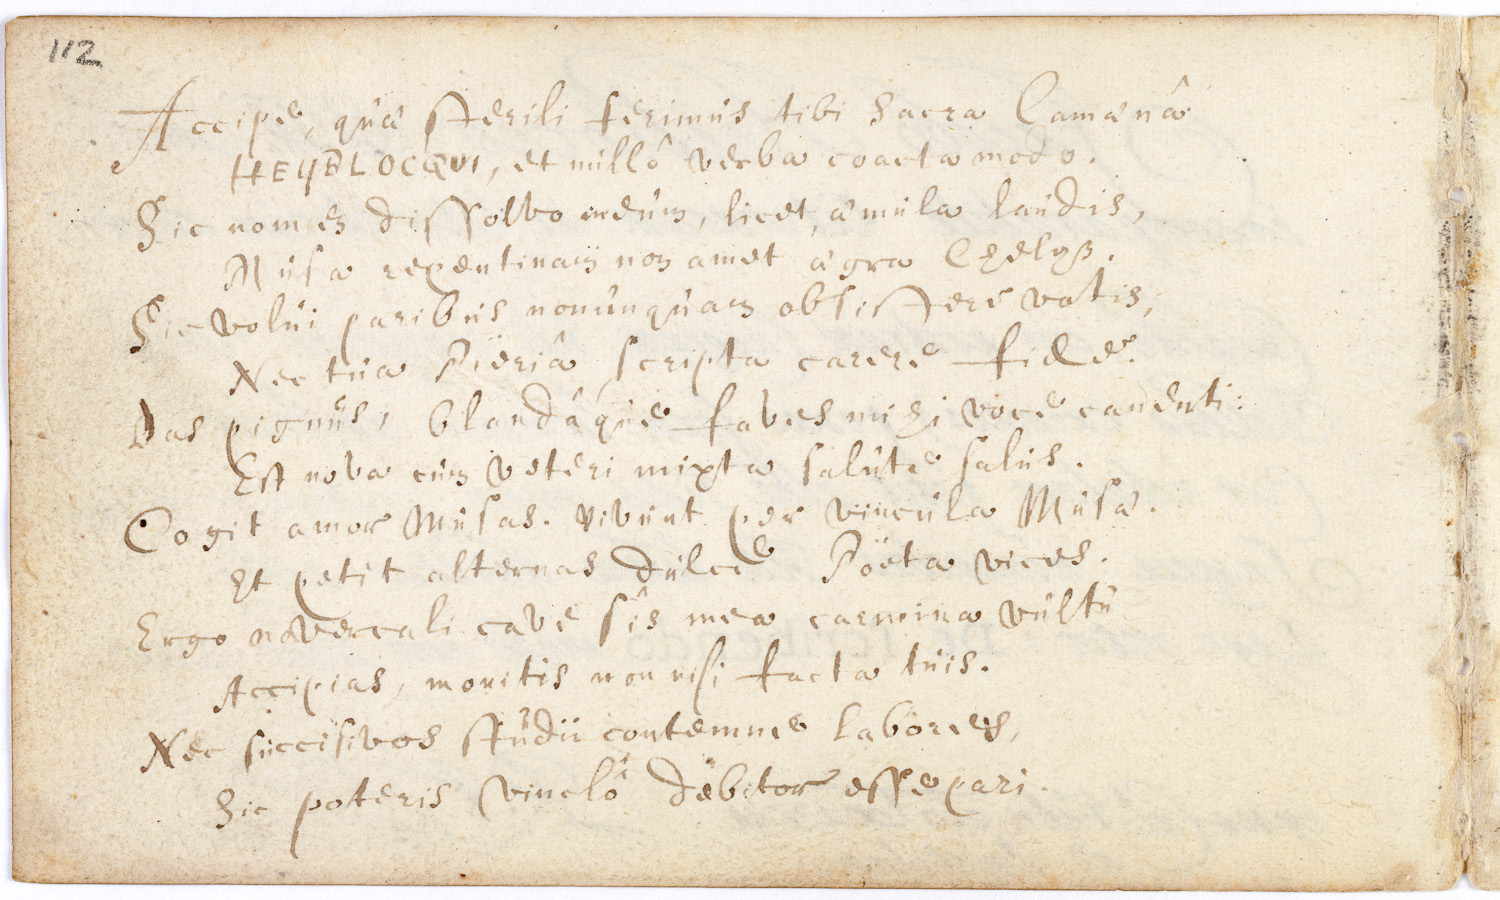 112
Accipe, quæ sterili ferimus tibi sacra Camænâ
HEYBLOCQVI, et nullô verba coacta modo.
Sic nomen dissolvo meum, licet, æmula laudis,
Musa repentinam non amet ægra Chelyn.
Sic volui paribus nonunquam obsistere votis,
Nec tua Pieriâ scripta carere fide.
Das pignus, blandâque faves mihi voce canenti:
Est nova cum veteri mixta salute salus.
Cogit amor Musas. vivunt per vincula Musæ.
Et petit alternas dulce Pöeta vices.
Ergo novercali cave sîs mea carmina vultu
Accipias, monitis non nisi facta tuis.
Nec succisivos studii contemne labores,
Sic poteris vinclô debitor esse pari.